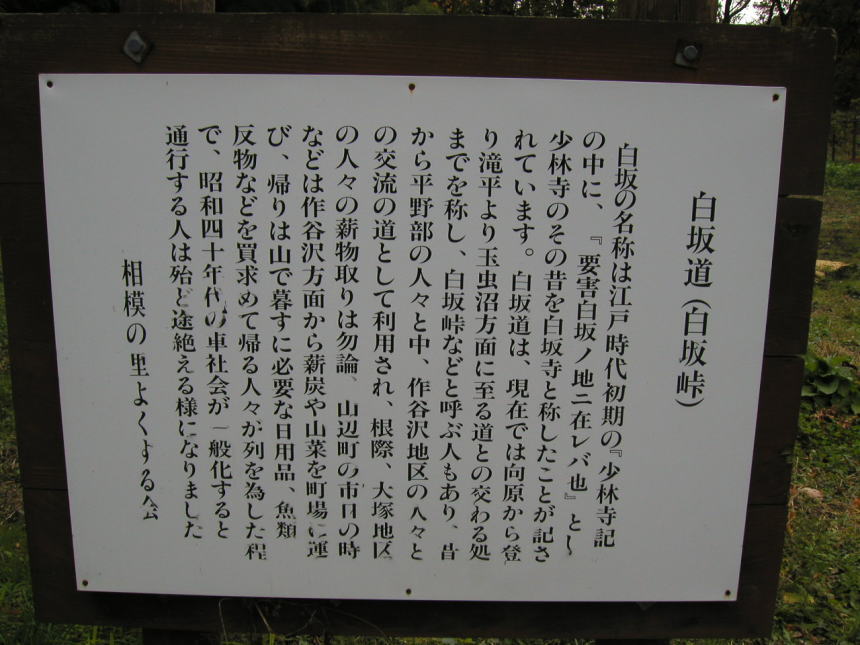 白坂道（白坂峠）
白坂の名称は江戸時代初期の『少林寺記
の中に、『要害白坂ノ地ニ在レバ也』とし
少林寺のその昔を白坂寺と称したことが記さ
れています。白坂道は、現在では向原から登
り滝平より玉虫沼方面に至る道との交わる処
までを称し、白坂峠などと呼ぶ人もあり、昔
から平野部の人々と中、作谷沢地区の人々と
の交流の道として利用され、根際、大塚地区
の人々の薪物取りは勿論、山辺町の市日の時
などは作谷沢方面から薪炭や山菜を町場に運
び、帰りは山で暮すに必要な日用品、魚類
反物などを買求めて帰る人々が列を為した程
で、昭和四十年代の車社会が一般化すると
通行する人は殆ど途絶える様になりました
相模の里よくする会